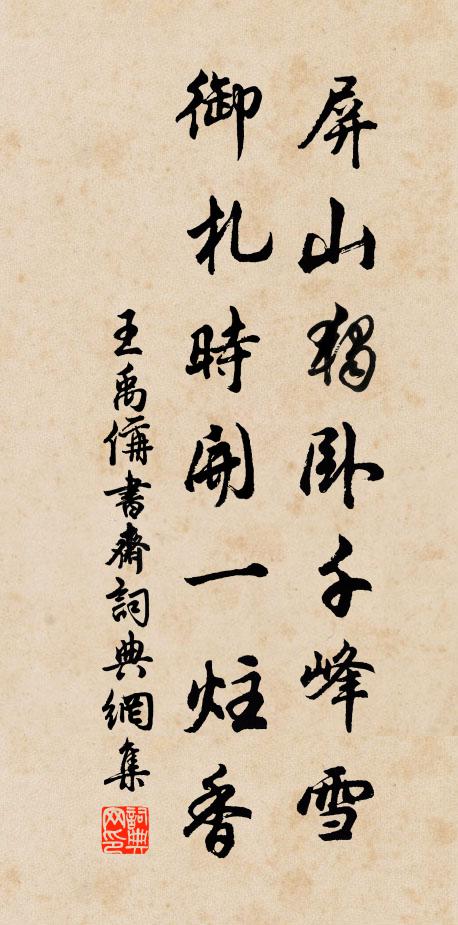 屏山獨卧千峰雪
御札時開一炷香
王禹偁書齋詞典網集
詞典網印